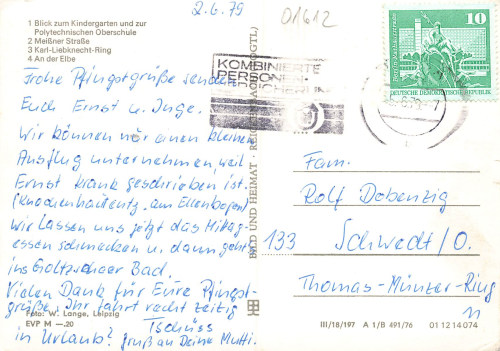 2.6.79
01612
1 Blick zum Kindergarten und zur
Polytechnischen Oberschule
2 Meißner Straße
3 Karl-Liebknecht-Ring
4 An der Elbe
KOMBINIERTE
PERSONEN-
10
DEUTSCHE DEMOKRATISCHE REPUBLIK
Frohe Pfingstgrüße senden
Euch Ernst u. Inge.
Wir können nur einen kleinen
Ausflug unternehmen, weil
Ernst krank geschrieben ist.
(Knochenhautentz. am Ellenbogen)
Wir lassen uns jetzt das Mittag-
essen schmecken u. dann geht's
ins Bad.
Vielen Dank für Eure Pfingst-
grüße. Ihr fahrt recht zeitig
Tschüss
in Urlaub? Gruß an Deine Mutti.
Foto: W. Lange, Leipzig
EVP M —.20
BILD UND HEIMAT · REICHENBACH (VOGTL)
Fam.
Rolf Dobenzig
133 Schwedt/O.
Thomas-Münzer-Ring
11
III/18/197 A 1/B 491/76 011214074